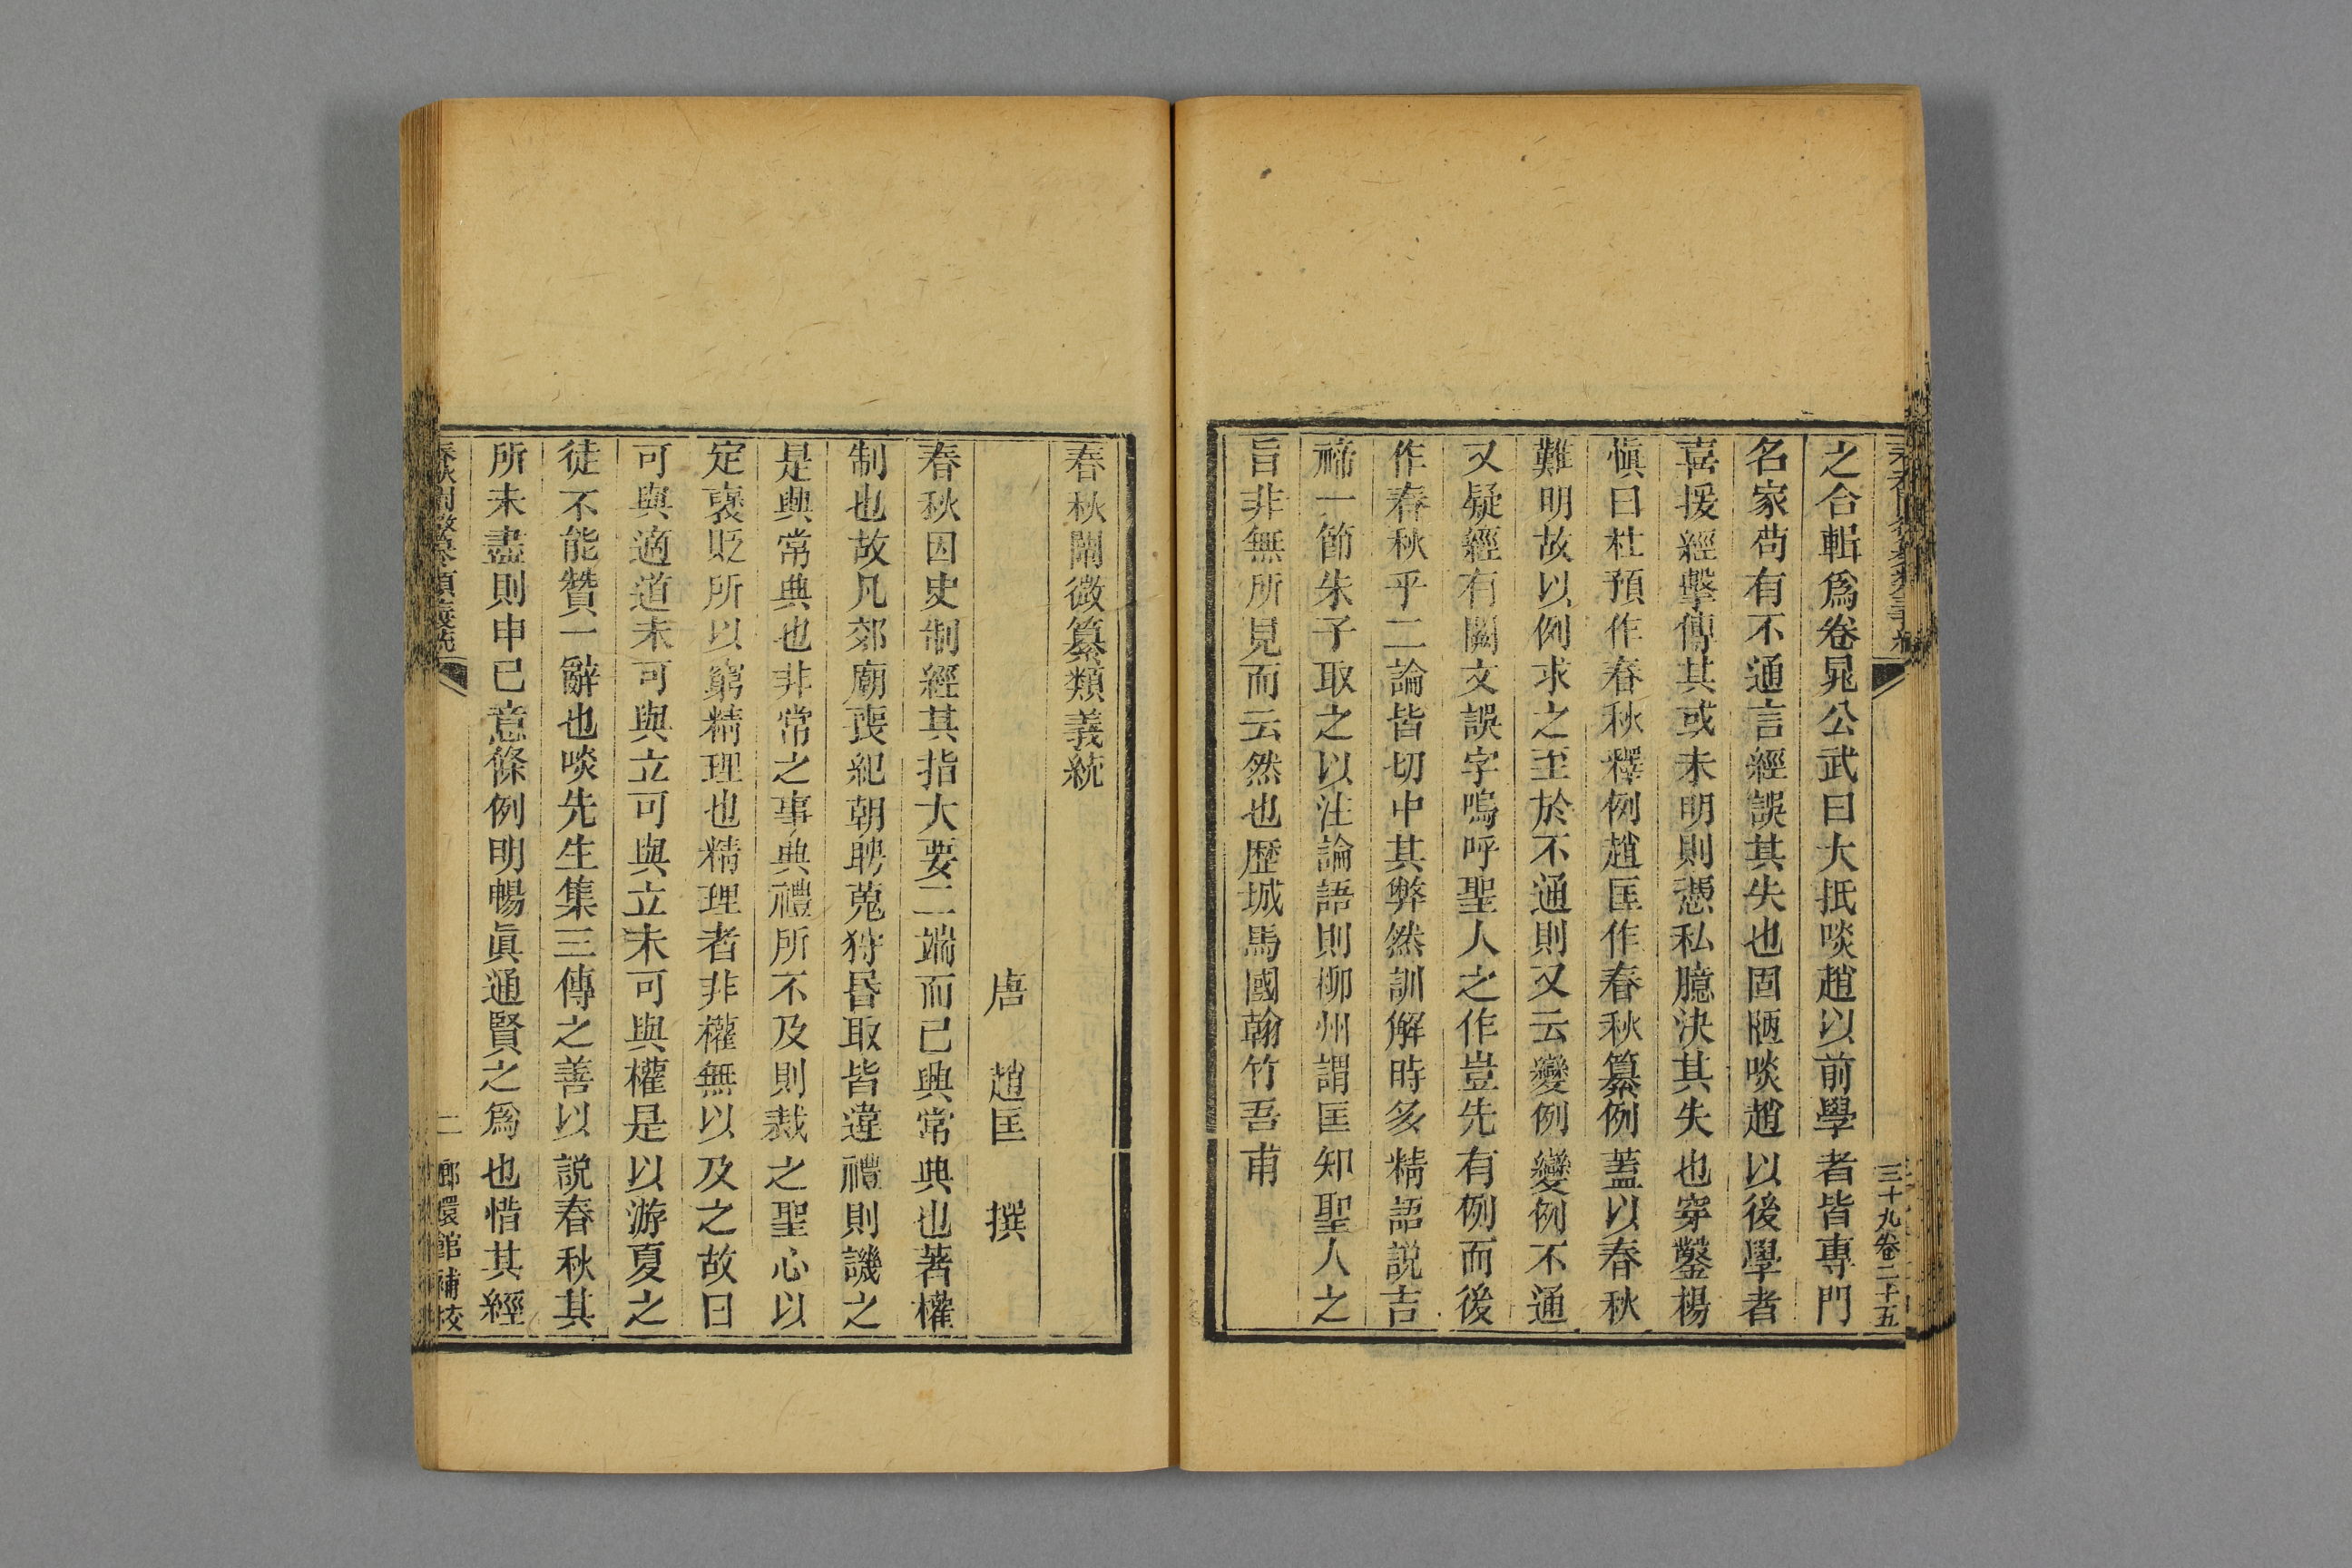 三十九卷二十五
之合輯爲卷晁公武曰大抵啖趙以前學者皆專門
名家苟有不通言經誤其失也固陋啖趙以後學者
喜援經擊傳其或未明則憑私臆決其失也穿鑿楊
愼曰杜預作春秋釋例趙匡作春秋纂例蓋以春秋
難明故以例求之至於不通則又云變例變例不通
又疑經有闕文誤字嗚呼聖人之作豈先有例而後
作春秋乎二論皆切中其弊然訓解時多精語説吉
禘一節朱子取之以注論語則柳州謂匡知聖人之
旨非無所見而云然也歷城馬國翰竹吾甫
春秋闡微纂類義統
唐 趙匡 撰
春秋因史制經其指大要二端而已興常典也著權
制也故凡郊廟喪紀朝聘蒐狩昏取皆違禮則譏之
是興常典也非常之事典禮所不及則裁之聖心以
定褒貶所以窮精理也精理者非權無以及之故曰
可與適道未可與立可與立未可與權是以游夏之
徒不能贊一辭也啖先生集三傳之善以説春秋其
所未盡則申已意條例明暢眞通賢之爲也惜其經
春秋闡微纂類義統 二 鄉嬛館補校